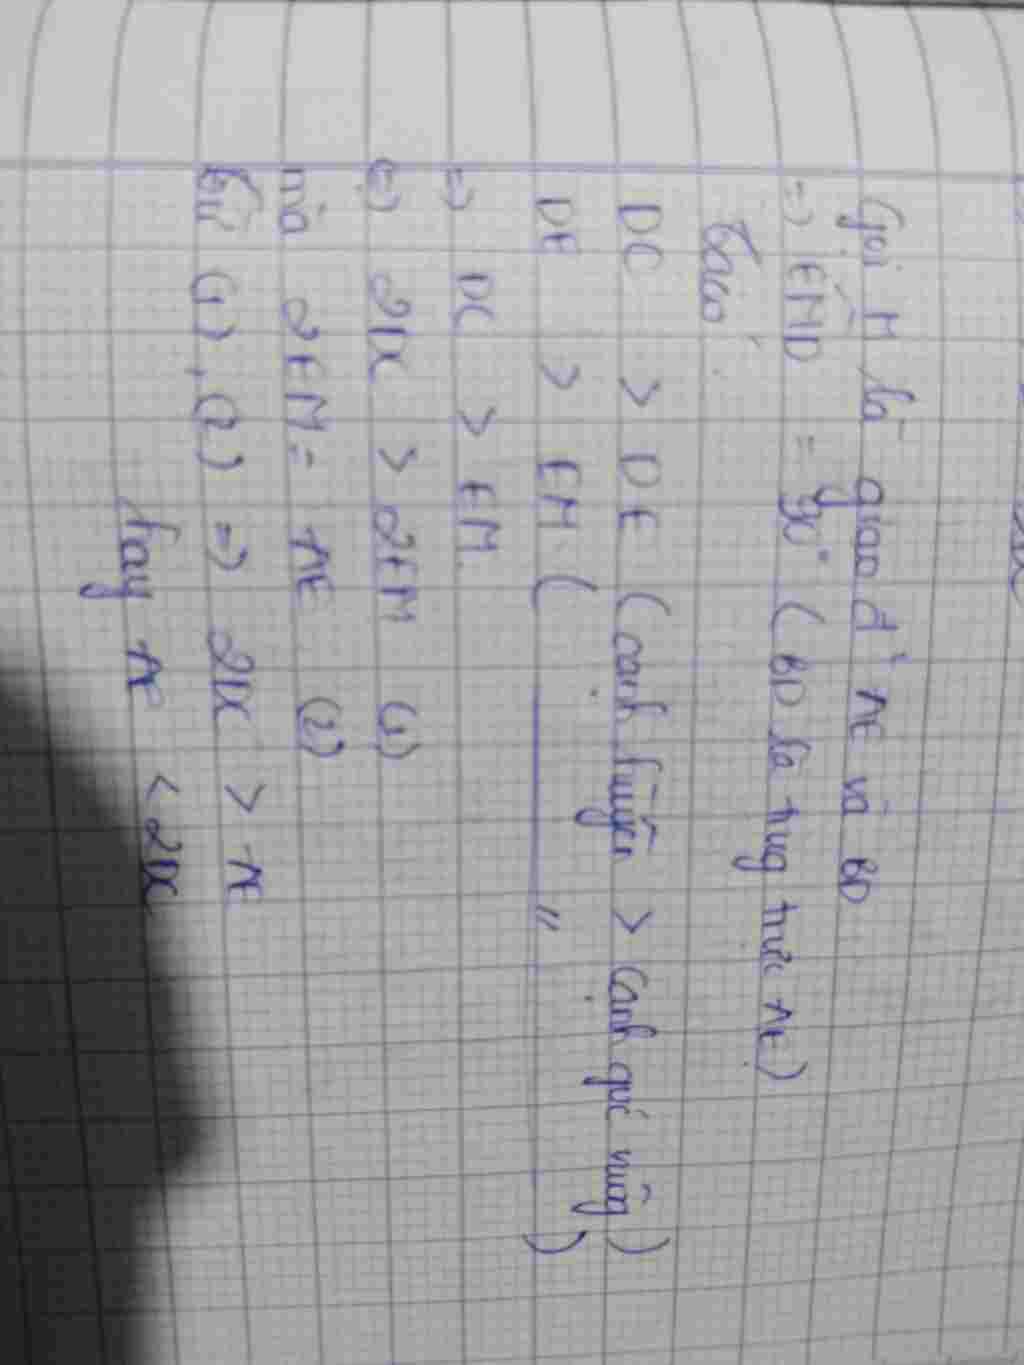 Gọi M là giao đ' AE và BD
=> EMD = 90° (BD là trug trực AE)
Taco:
DC > DE (cạnh huyền > cạnh góc vuông)
DE > EM ( ______ " ______ )
=> DC > EM.
(=) 2DC > 2EM (1)
mà 2EM = AE (2)
Từ (1), (2) => 2DC > AE
hay AE < 2DC